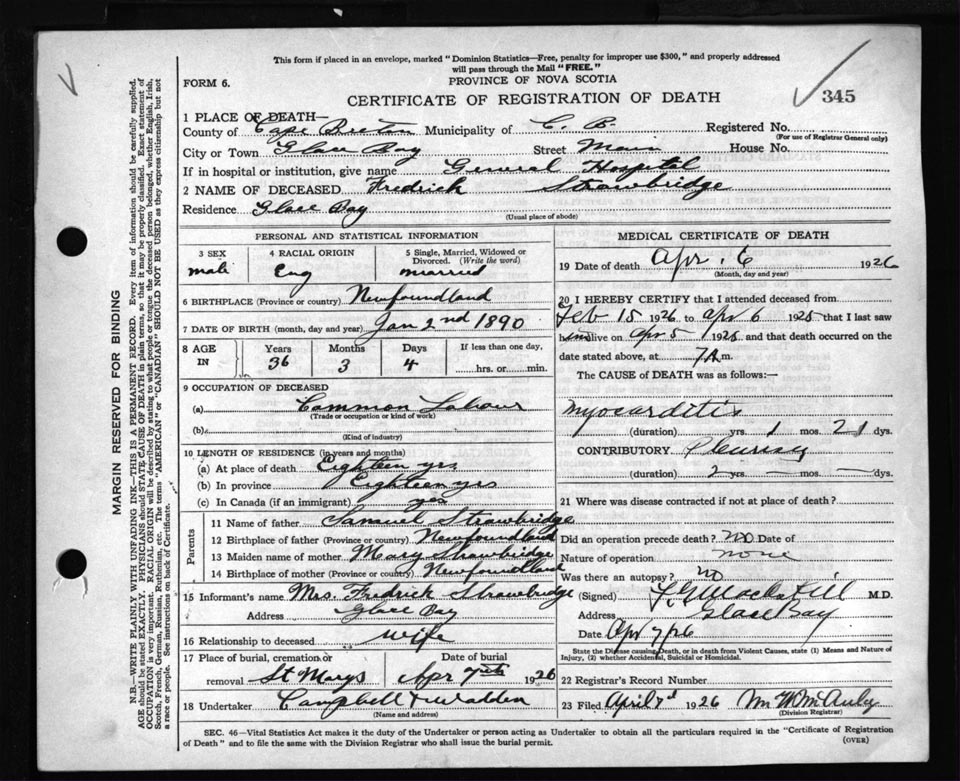 This form if placed in an envelope, marked "Dominion Statistics—Free, penalty for improper use $300," and properly addressed
will pass through the Mail "FREE."
FORM 6.
PROVINCE OF NOVA SCOTIA
CERTIFICATE OF REGISTRATION OF DEATH
345
1 PLACE OF DEATH—
County of Cape Breton Municipality of C. B. Registered No.
(For use of Registrar General only)
City or Town Glace Bay Street Main House No.
If in hospital or institution, give name General Hospital
2 NAME OF DECEASED Fredrick Strawbridge
Residence Glace Bay
(Usual place of abode)
PERSONAL AND STATISTICAL INFORMATION
3 SEX 4 RACIAL ORIGIN 5 Single, Married, Widowed or
Divorced. (Write the word)
male Eng married
6 BIRTHPLACE (Province or country) Newfoundland
7 DATE OF BIRTH (month, day and year) Jan 2nd 1890
8 AGE IN Years Months Days If less than one day,
36 3 4 hrs. or min.
9 OCCUPATION OF DECEASED
(a) Common Labour
(Trade or occupation or kind of work)
(b)
(Kind of industry)
10 LENGTH OF RESIDENCE (in years and months)
(a) At place of death Eighteen yrs
(b) In province Eighteen yrs
(c) In Canada (if an immigrant) yes
Parents
11 Name of father Samuel Strawbridge
12 Birthplace of father (Province or country) Newfoundland
13 Maiden name of mother Mary Strawbridge
14 Birthplace of mother (Province or country) Newfoundland
15 Informant's name Mrs. Fredrick Strawbridge
Address Glace Bay
16 Relationship to deceased wife
17 Place of burial, cremation or Date of burial
removal St Marys Apr 7th 1926
18 Undertaker Campbell & Wadden
(Name and address)
MEDICAL CERTIFICATE OF DEATH
19 Date of death Apr. 6 1926
(Month, day and year)
20 I HEREBY CERTIFY that I attended deceased from
Feb 15 1926 to Apr 6 1926 that I last saw
him alive on Apr 5 1926 and that death occurred on the
date stated above, at 7 A m.
The CAUSE of DEATH was as follows:—
Myocarditis
(duration) yrs. 1 mos. 21 dys.
CONTRIBUTORY. Pleurisy
(duration) 2 yrs. — mos. — dys.
21 Where was disease contracted if not at place of death?
Did an operation precede death? no Date of
Nature of operation none
Was there an autopsy? no
(Signed) M.D.
Address Glace Bay
Date Apr 7/26
State the Disease causing Death, or in death from Violent Causes, state (1) Means and Nature of
Injury, (2) whether Accidental, Suicidal or Homicidal.
22 Registrar's Record Number
23 Filed April 7th 1926 M McAuley
(Division Registrar)
SEC. 46—Vital Statistics Act makes it the duty of the Undertaker or person acting as Undertaker to obtain all the particulars required in the "Certificate of Registration
of Death" and to file the same with the Division Registrar who shall issue the burial permit.
(OVER)
MARGIN RESERVED FOR BINDING
N.B.—WRITE PLAINLY WITH UNFADING INK—THIS IS A PERMANENT RECORD. Every item of information should be carefully supplied.
AGE should be stated EXACTLY. PHYSICIANS should STATE CAUSE OF DEATH in plain terms, so that it may be properly classified. Exact statement of
OCCUPATION is very important. RACIAL ORIGIN will be described by stating to what people or tongue the deceased person belonged, whether English, Irish,
Scotch, French, German, Russian, Ruthenian, etc. The terms "AMERICAN" or "CANADIAN" SHOULD NOT BE USED as they express citizenship but not
a race or people. See instructions on back of Certificate.